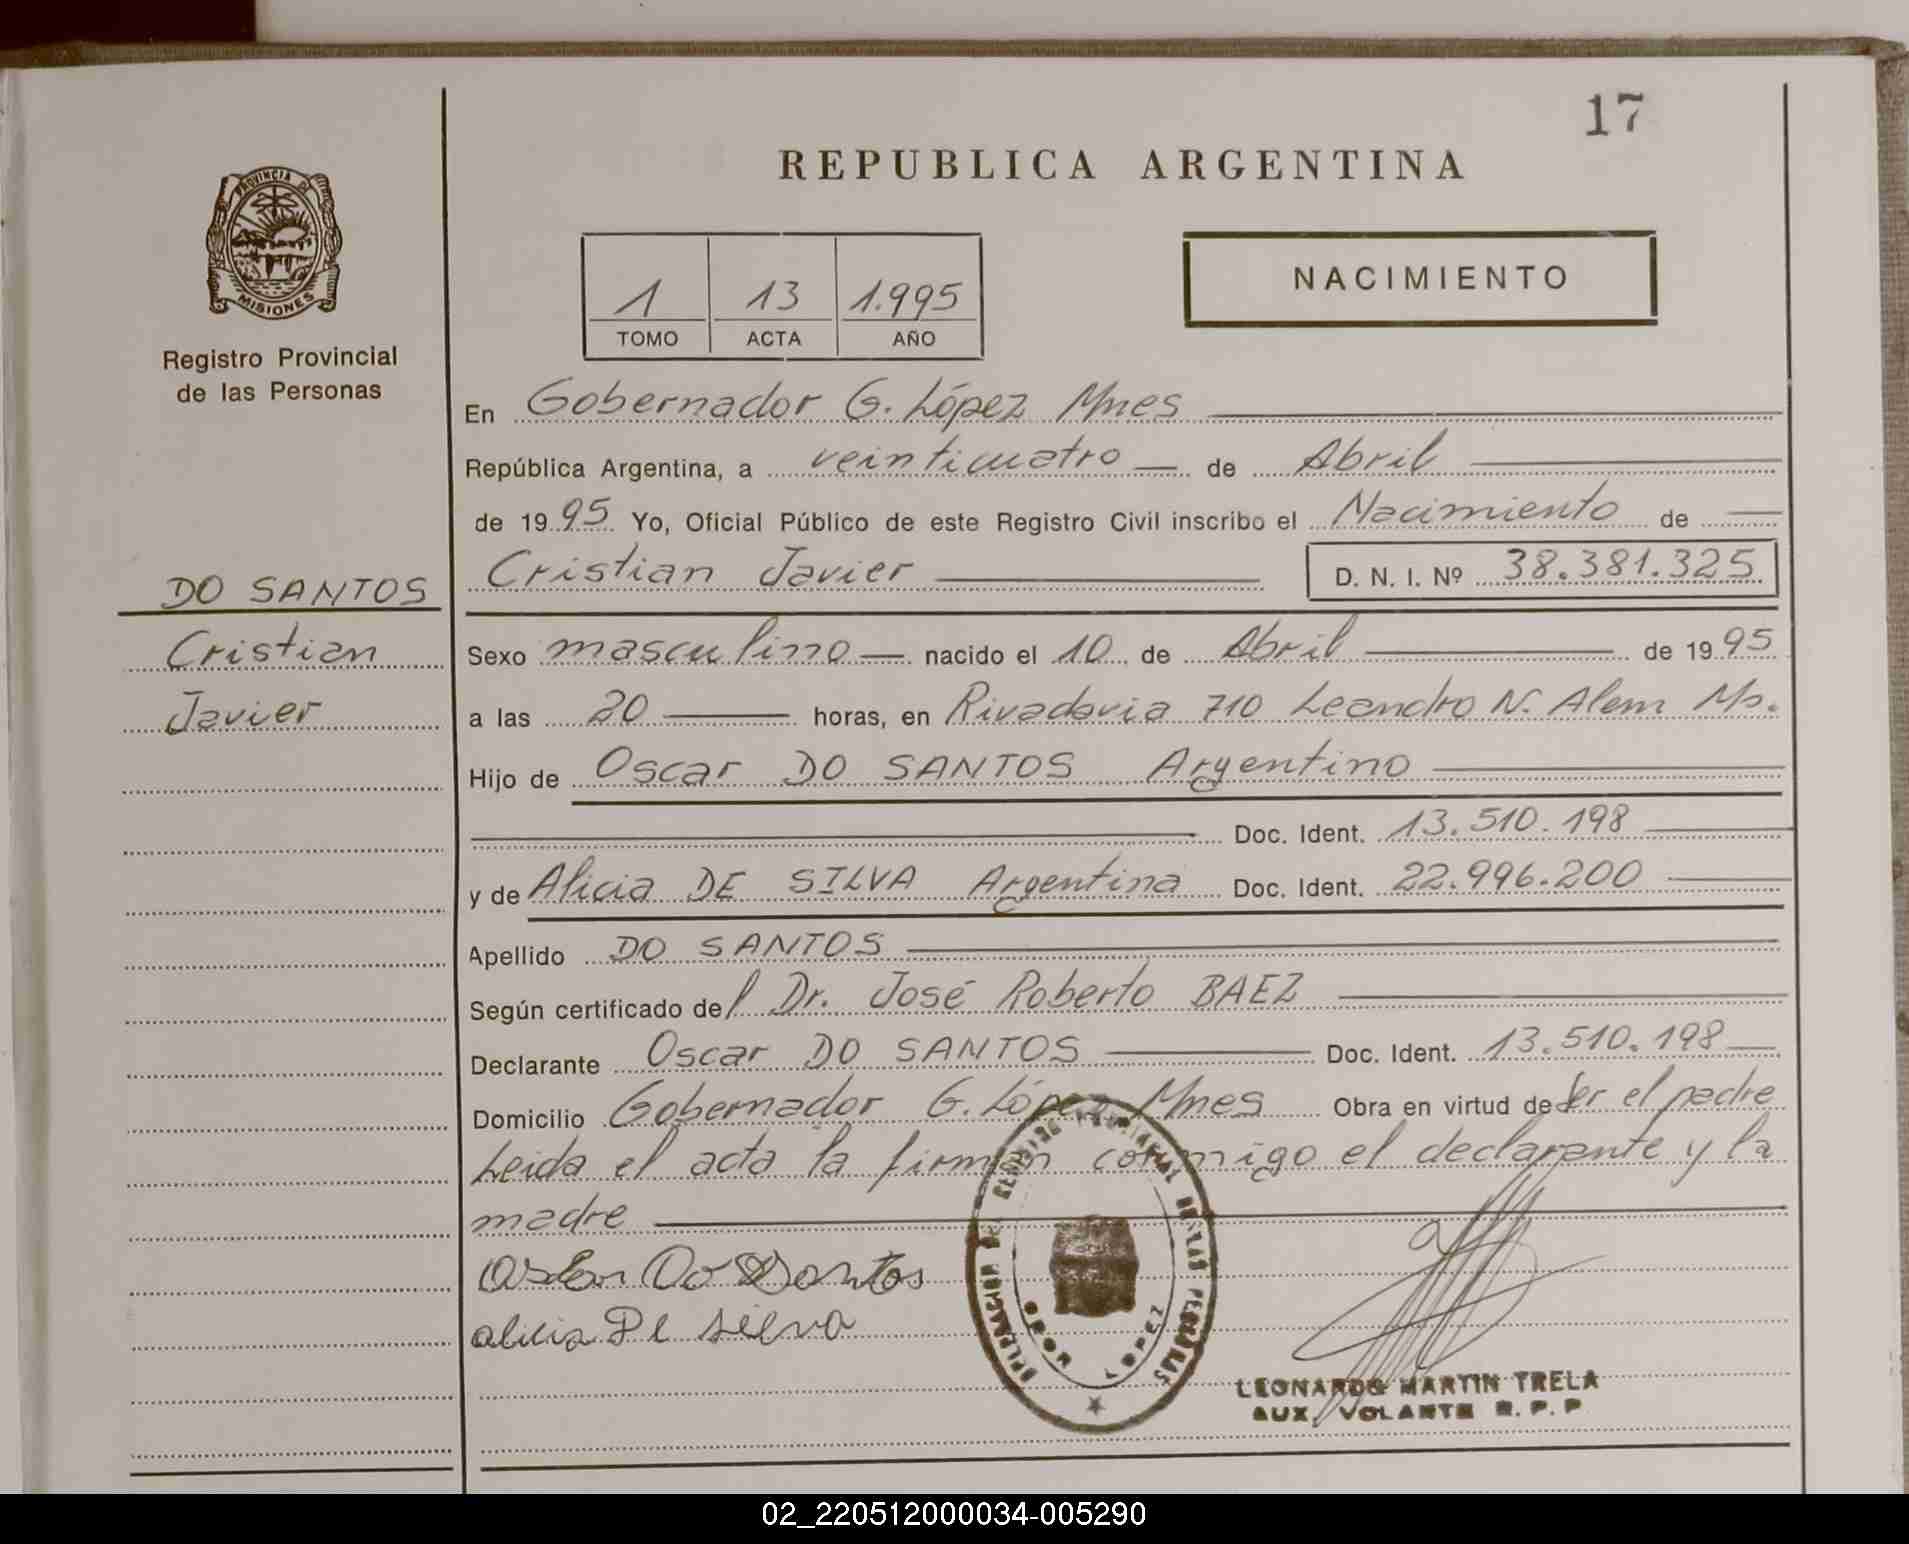 17
REPUBLICA ARGENTINA
PROVINCIA DE
MISIONES
Registro Provincial
de las Personas
1 13 1.995
TOMO ACTA AÑO
NACIMIENTO
En Gobernador G. López Mnes
República Argentina, a veinticuatro de Abril
de 1995 Yo, Oficial Público de este Registro Civil inscribo el Nacimiento de
Cristian Javier D. N. I. Nº 38.381.325
DO SANTOS
Cristian
Javier
Sexo masculino nacido el 10 de Abril de 1995
a las 20 horas, en Rivadavia 710 Leandro N. Alem Ms.
Hijo de Oscar DO SANTOS Argentino
Doc. Ident. 13.510.198
y de Alicia DE SILVA Argentina Doc. Ident. 22.996.200
Apellido DO SANTOS
Según certificado del Dr. José Roberto BAEZ
Declarante Oscar DO SANTOS Doc. Ident. 13.510.198
Domicilio Gobernador G. López Mnes Obra en virtud de Ser el padre
Leida el acta la firman conmigo el declarante y la
madre
Do Santos
alicia De silva
DELEGACION DEL REGISTRO PROVINCIAL DE LAS PERSONAS
GDOR LOPEZ
LEONARDO MARTIN TRELA
AUX. VOLANTE R. P. P
02_220512000034-005290